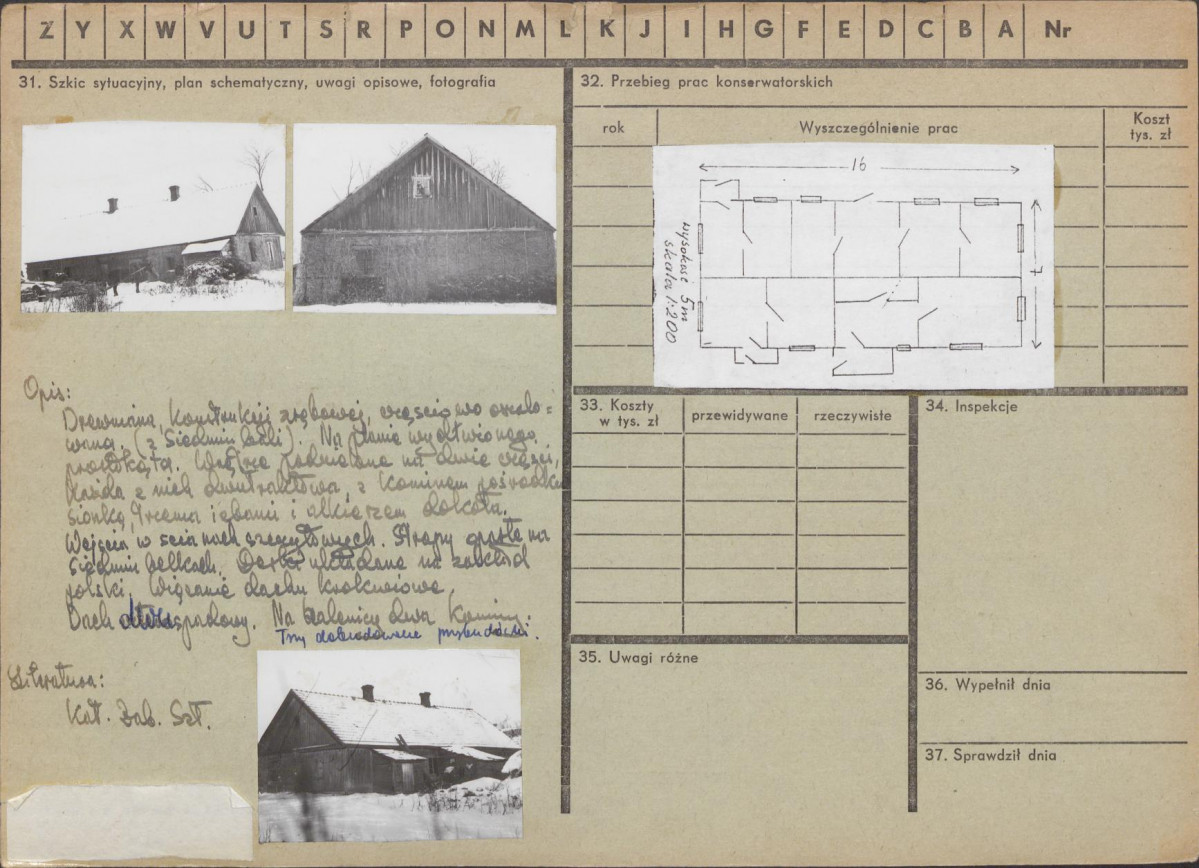 Z Y X W V U T S R P O N M L K J I H G F E D C B A Nr
31. Szkic sytuacyjny, plan schematyczny, uwagi opisowe, fotografia
Opis:
Drewniana, konstrukcji zrębowej, częściowo oszalo=
wana. (z siedmiu bali). Na planie wydłużonego
prostokąta. Wnętrze podzielone na dwie części,
Każda z nich dwutraktowa, z kominem pośrodku
sionką, trzema izbami i alkierzem dokoła.
Wejścia w ścianach szczytowych. Stropy oparte na
siedmiu belkach. Deski układane na zakład
polski. Wiązanie dachu krokwiowe.
Dach dwuspadowy. Na kalenicy dwa kominy.
Trzy dobudowane przybudówki.
Literatura:
Kat. Zab. Szt.
32. Przebieg prac konserwatorskich
rok
Wyszczególnienie prac
Koszt
tys. zł
16
7
wysokość 5m
skala 1:200
33. Koszty
w tys. zł
przewidywane
rzeczywiste
34. Inspekcje
35. Uwagi różne
36. Wypełnił dnia
37. Sprawdził dnia